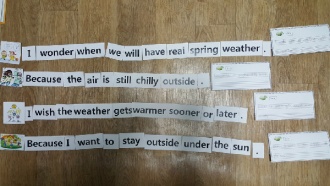 I wonder when we will have real spring weather.
Because the air is still chilly outside.
I wish the weather gets warmer sooner or later.
Because I want to stay outside under the sun.